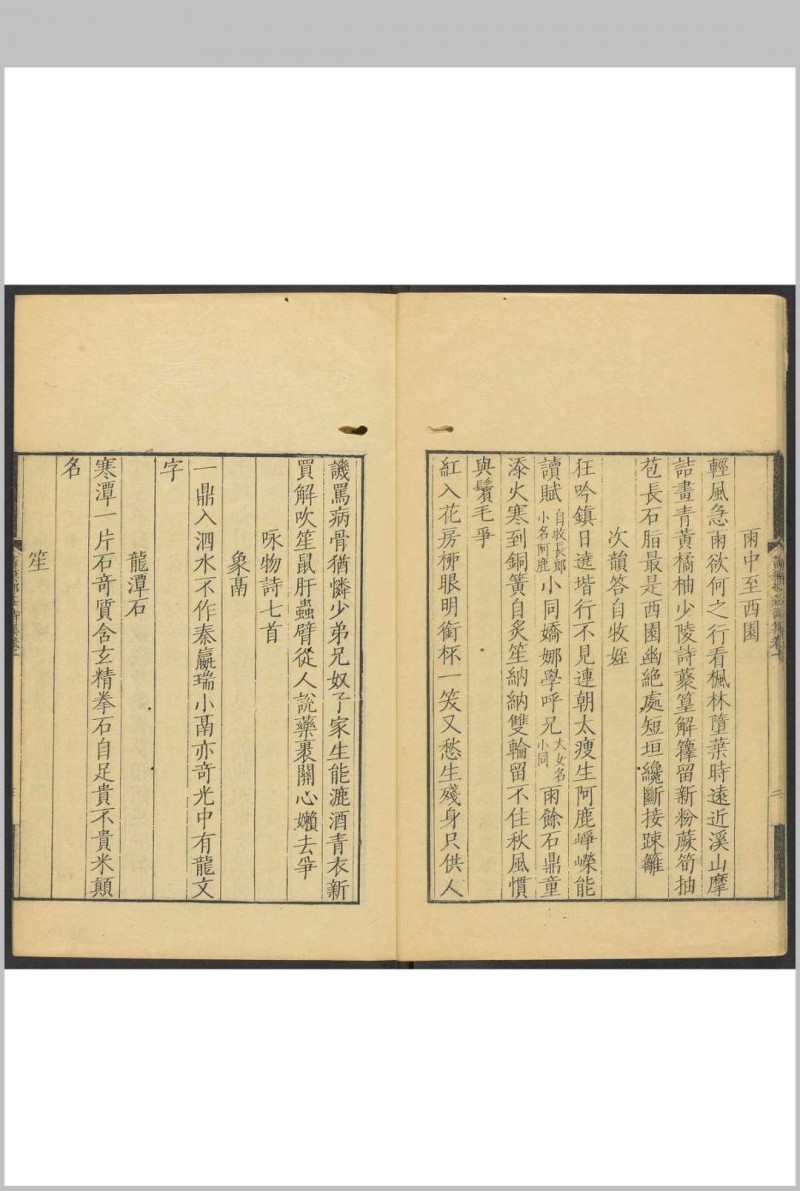 雨中至西園
輕風急雨欲何之行看楓林墮葉時遠近溪山摩
詰畫青黃橘柚少陵詩藂篁解籜留新粉蕨筍抽
苞長石脂最是西園幽絕處短垣纔斷接踈籬
次韻答自牧姪
狂吟鎮日遶堦行不見連朝太瘦生阿鹿崢嶸能
讀賦自牧長郎小名阿鹿小同嬌娜學呼兄大女名小同雨餘石鼎童
添火寒到銅簧自炙笙納納雙輪留不住秋風慣
與鬢毛爭
紅入花房栁眼明銜杯一笑又愁生殘身只供人
譏罵病骨猶憐少弟兄奴子家生能漉酒青衣新
買解吹笙鼠肝蟲臂從人說藥裹關心嬾去爭
咏物詩七首
象鬲
一鼎入泗水不作秦嬴瑞小鬲亦奇光中有龍文
字
龍潭石
寒潭一片石奇質含玄精拳石自足貴不貴米顛
名
笙